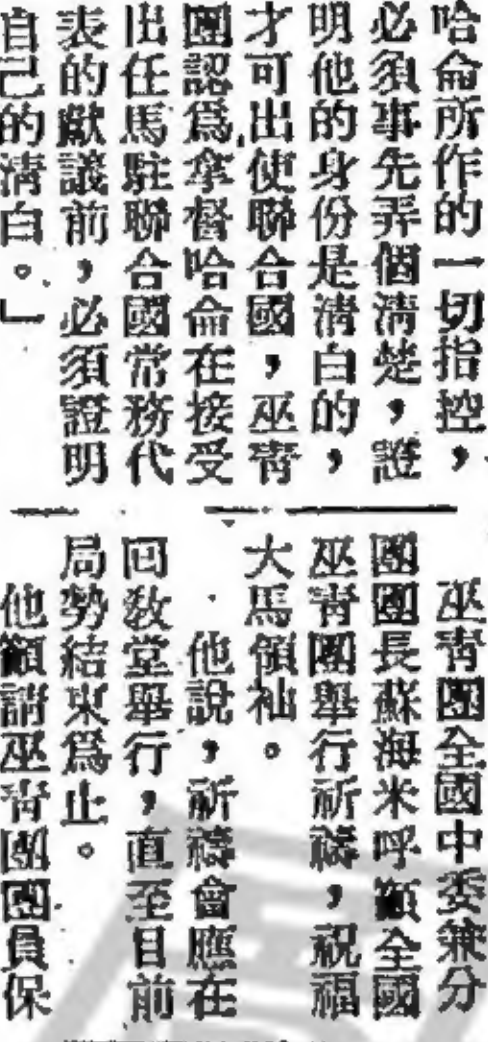 哈侖所作的一切指控，
必須事先弄個清楚，證
明他的身份是清白的，
才可出使聯合國，巫青
團認爲，拿督哈侖在接受
出任馬駐聯合國常務代
表的獻議前，必須證明
自己的清白。」
巫青團全國中委兼分
團團長蘇海米呼籲全國
巫青團舉行祈禱，祝福
大馬領袖。
他說，祈禱會應在
回敎堂舉行，直至目前
局勢結束爲止。
他籲請巫青團團員保